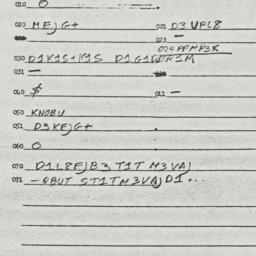 010 0
020 MEJG+ 021 D3 UPL8
023 —
024 PFMP3R
030 D1K1S+K1S D1G1GER1M
031 —
040 $ 041 —
050 KNOBU
051 D3KEJG+
060 0
070 D1L8EJB3 T1T M3VAJ
071 -OBUT ST1TM3VAJD1...